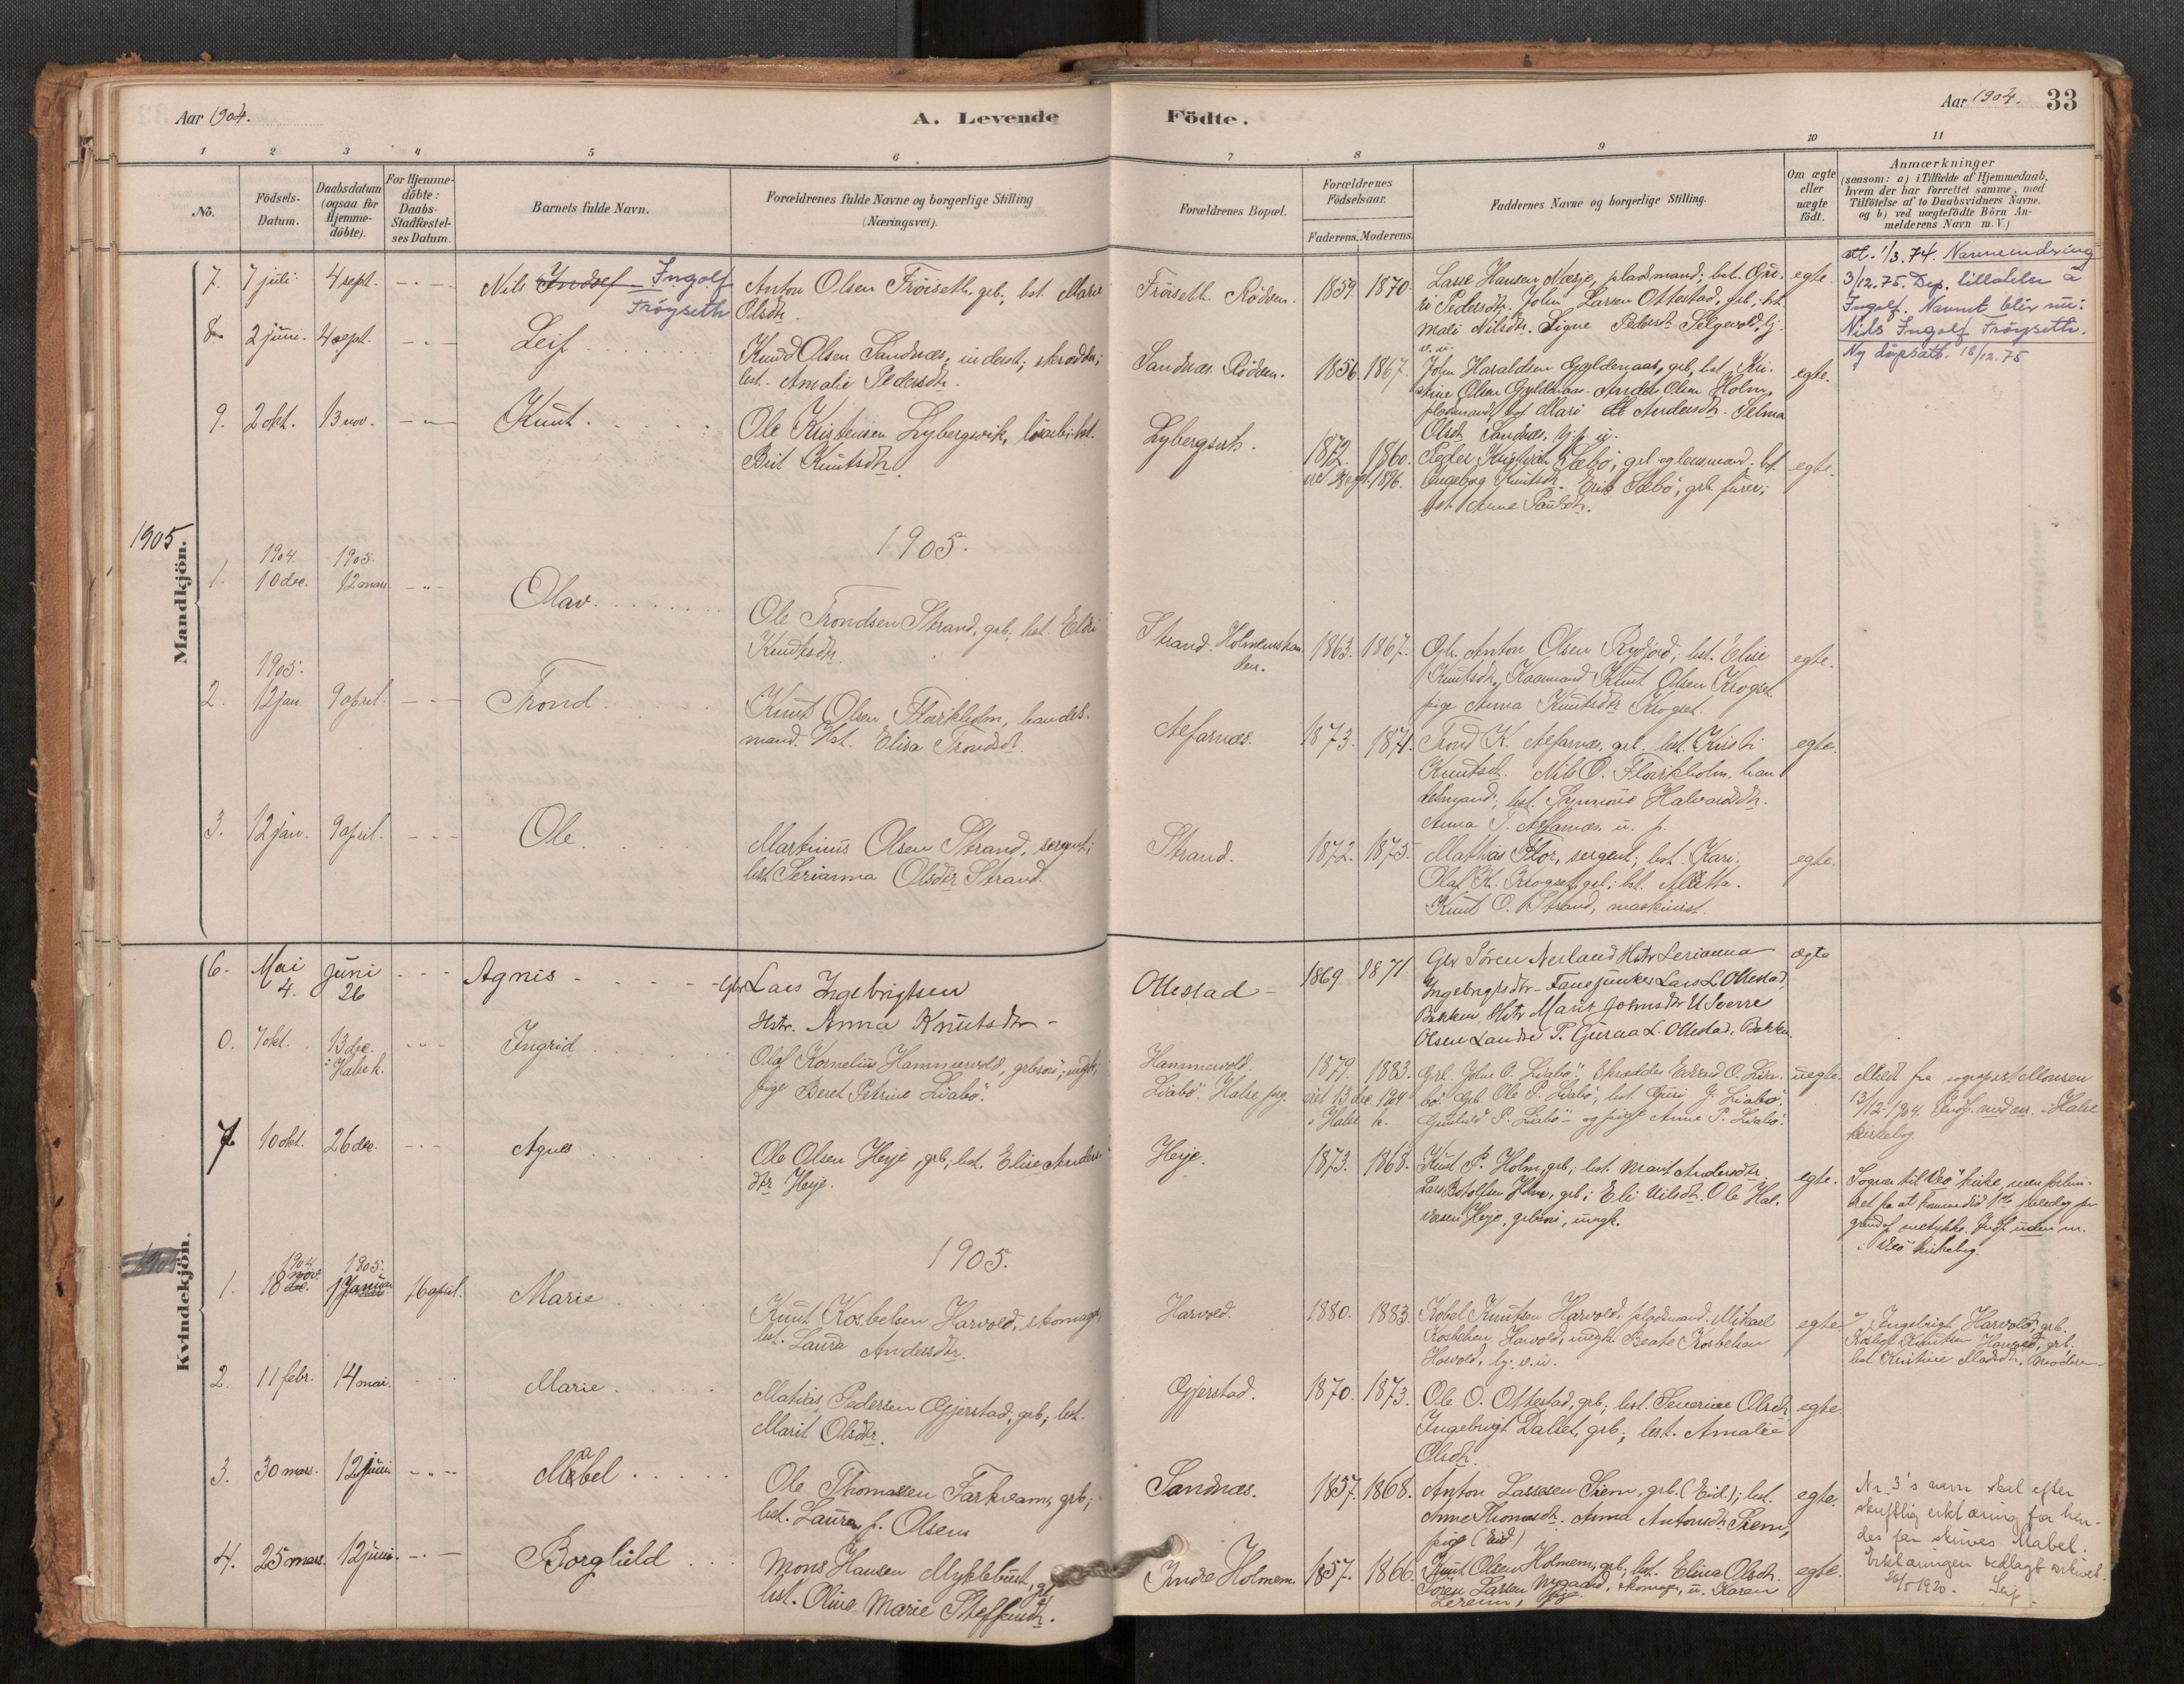 Aar 1904.
A. Levende
Födte.
Aar 1904. 33
1 2 3 4 5 6 7 8 9 10 11
No.
Födsels-
Datum.
Daabsdatum
(ogsaa for
Hjemme-
döbte).
For Hjemme-
döbte:
Daabs-
Stadfæstel-
ses Datum.
Barnets fulde Navn.
Forældrenes fulde Navne og borgerlige Stilling
(Næringsvei).
Forældrenes Bopæl.
Forældrenes
Födselsaar.
Faderens. Moderens.
Faddernes Navne og borgerlige Stilling.
Om ægte
eller
uægte
födt.
Anmærkninger
(saasom: a) i Tilfælde af Hjemmedaab,
hvem der har forrettet samme, med
Tilföielse af to Daabsvidners Navne.
og b) ved uægtefödte Börn An-
melderens Navn m. V.)
Mandkjön.
7. 7 juli 4 sept. Nils Ingolf
Fröyseth
Anton Olsen Fröiseth, grb., hst. Marit
Olsdtr.
Fröiseth. Rödsen. 1859. 1870.
Lasse Hansen Næsje, pladsmand; hst. Gu-
ri Pedersdtr. John Larsen Ottestad, grb.; hst.
Mali Nilsdtr. Signe Pedersdtr. Selgevold, tj.
egte.
att. 1/3.74. Navneendring
3/12.75. Dep. tillatelse å
Ingolf. Navnet blir nu:
Nils Ingolf Fröyseth.
Ny dåpsatt. 18/12.75
8 2 juni. 4 sept. Leif
Knud Olsen Sandnæs, inderst, skrædder;
hst. Amalie Pedersdtr.
Sandnæs. Rödsen. 1856. 1867.
John Haraldsen Gyldenaas, grb., hst. Kri-
stine Olsen Gyldenaas. Anders Olsen Holm,
pladsmand, hst. Mari Andersdtr. Selma
Olsdtr. Sandnæs, tj. p. u.
egte.
9. 2 okt. 13 nov. Knut.
Ole Kristensen Lybergsvik, hst.
Brit Knutsdtr.
Lybergsvk. 1872. 1860.
1896.
Peder Kristján Sæbö, grb. og lensmand. hst.
Ingeborg Knutsdtr. Erik Sæbö, grb. furer;
hst Anne Paulsdtr.
egte.
1905
1905.
1904. 1905.
1. 10 dec. 12 mars Olav.
Ole Trondsen Strand, grb. hst. Eldri
Knudtsdtr.
Strand. Holmemstran-
den. 1863. 1867.
Grb. Anton Olsen Rydjord, hst. Elise
Knutsdtr, Kaarmand Knut Olsen Krogset
pige Anna Knutsdtr Krogset.
egte.
1905.
2. 12 jan. 9 april. Trond.
Knut Olsen Flarkholm, handels-
mand. Hst. Elisa Trondsdtr.
Alfarnæs. 1873. 1874.
Trond K. Alfarnæs, grb. hst. Kirsti
Knutsdtr. Nils O. Flarkholm, han-
delsmand; hst. Synnöve Halvardsdtr.
Anna T. Alfarnæs. u. p.
egte.
3. 12 jan. 9 april. Ole.
Martinus Olsen Strand, sergent;
hst Serianna Olsdtr Strand.
Strand. 1872. 1875.
Mathias Flor, sergent; hst. Kari.
Olaf K. Krogset, grb.; hst. Aletta.
Knut O. Strand, maskinist.
egte.
Kvindekjön.
6. Mai
4. Juni
26 Agnis
Gbr Lars Ingebrigtsen
Hstr. Anna Knutsdtr
Ottestad 1869 1871.
Gbr Sören Nerland Hstr Serianna
Ingebrigtsdtr - Fanejunker Lars L. Ottestad,
Bakken, Hstr Marit Johnsdtr U Sverre
Olsen Landre P. Guraa L. Ottestad, Bakken.
ægte
0. 7 okt. 13 dec.
i Halse k. Ingrid
Olaf Kornelius Hammervold, grbsön, ungk.
pige Beret Petrine Liabö.
Hammervold.
Liabö. Halse prg. 1879. 1883.
13 dec 1904
i Halse k.
Grb. John O. Liabö. Skrædder Edvard O. Lia-
bö. Grb. Ole P. Liabö, hst. Guri J. Liabö.
Gunhild P. Liabö og pige Anne P. Liabö.
uegte.
Meldt fra sogneprst Monsen
13/12 1904. Indf. med nr. i Halse
kirkebog
7 10 okt. 26 dec. Agnes
Ole Olsen Heje, grb., hst. Elise Anders-
dtr Heje.
Heje. 1873. 1868.
Knut P. Holm, grb.; hst. Marit Andersdtr.
Lars Botolfsen Holm, grb.; Eli Nilsdtr. Ole Hal-
vorsen Heje, grbsön, ungk.
egte.
Sogner til Veö kirke, men forhin-
dret fra at komme did
grund af Indf. uden nr.
i Veö kirkebog.
1905.
1904. 1905.
1. 18 nov. 1 Januar 16 april. Marie
Knut Kosbelsen Harvold, skomager,
hst. Laura Andersdtr.
Harvold. 1880. 1883.
Kobel Knutsen Harvold, pladsmand. Mikael
Kosbelsen Harvold, ungk. Beate Kosbelsen
Harvold, tj. v. u.
egte
Ingebrigt Harvold, grb.
Kosbel Knutsen Harvold, grb.
hst. Kristine Madsdtr.
2. 11 febr. 14 mai. Marie
Mathias Pedersen Gjerstad, grb.; hst.
Marit Olsdtr.
Gjerstad. 1870. 1873.
Ole O. Ottestad, grb.; hst. Severine Olsdtr.
Ingebrigt Dalset, grb.; hst. Amalie
Olsdtr.
egte.
3. 30 mars. 12 juni Mabel
Ole Thomassen Farkvam, grb;
hst. Laura f. Olsen
Sandnæs. 1857. 1868.
Anton Lassesen Siem, grb. (Eid.); hst.
Anne Thomasdtr. Anna Antonsdtr. Siem,
pige (Eid)
egte.
Nr. 3's navn skal efter
skriftlig erklæring fra hen-
des far skrives Mabel.
Erklæringen vedlagt arkivet.
26/5 1920.
4. 25 mars. 12 juni. Borghild
Mons Hansen Myklebust, grb
hst. Oline Marie Steffensdtr.
Indre Holmem. 1857. 1866.
Knut Olsen Holmem, grb., hst. Elina Olsdtr.
Sören Larsen Nygaard, skomager, u. Karen
Sereun,
egte.